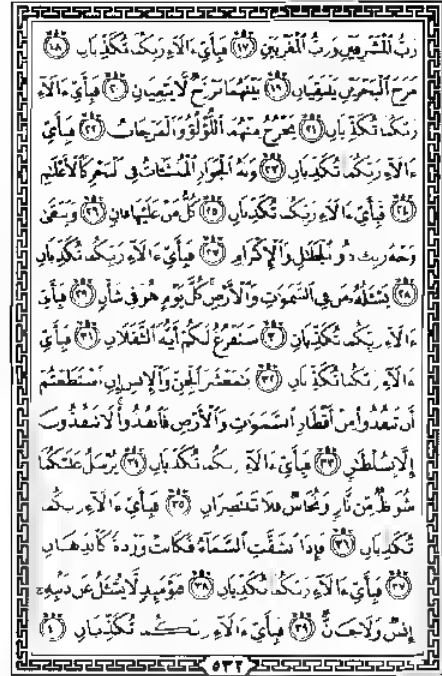 رَبُّ الْمَشْرِقَيْنِ وَرَبُّ الْمَغْرِبَيْنِ ﴿١٧﴾ فَبِأَيِّ ءَالَآءِ رَبِّكُمَا تُكَذِّبَانِ ﴿١٨﴾
مَرَجَ الْبَحْرَيْنِ يَلْتَقِيَانِ ﴿١٩﴾ بَيْنَهُمَا بَرْزَخٌ لَّا يَبْغِيَانِ ﴿٢٠﴾ فَبِأَيِّ ءَالَآءِ
رَبِّكُمَا تُكَذِّبَانِ ﴿٢١﴾ يَخْرُجُ مِنْهُمَا اللُّؤْلُؤُ وَالْمَرْجَانُ ﴿٢٢﴾ فَبِأَيِّ
ءَالَآءِ رَبِّكُمَا تُكَذِّبَانِ ﴿٢٣﴾ وَلَهُ الْجَوَارِ الْمُنشَئَاتُ فِي الْبَحْرِ كَالْأَعْلَامِ
﴿٢٤﴾ فَبِأَيِّ ءَالَآءِ رَبِّكُمَا تُكَذِّبَانِ ﴿٢٥﴾ كُلُّ مَنْ عَلَيْهَا فَانٍ ﴿٢٦﴾ وَيَبْقَىٰ
وَجْهُ رَبِّكَ ذُو الْجَلَالِ وَالْإِكْرَامِ ﴿٢٧﴾ فَبِأَيِّ ءَالَآءِ رَبِّكُمَا تُكَذِّبَانِ
﴿٢٨﴾ يَسْـَٔلُهُ مَن فِي السَّمَاوَاتِ وَالْأَرْضِ كُلَّ يَوْمٍ هُوَ فِي شَأْنٍ ﴿٢٩﴾ فَبِأَيِّ
ءَالَآءِ رَبِّكُمَا تُكَذِّبَانِ ﴿٣٠﴾ سَنَفْرُغُ لَكُمْ أَيُّهَ الثَّقَلَانِ ﴿٣١﴾ فَبِأَيِّ
ءَالَآءِ رَبِّكُمَا تُكَذِّبَانِ ﴿٣٢﴾ يَٰمَعْشَرَ الْجِنِّ وَالْإِنسِ إِنِ اسْتَطَعْتُمْ
أَن تَنفُذُوا مِنْ أَقْطَارِ السَّمَاوَاتِ وَالْأَرْضِ فَانفُذُوا لَا تَنفُذُونَ
إِلَّا بِسُلْطَانٍ ﴿٣٣﴾ فَبِأَيِّ ءَالَآءِ رَبِّكُمَا تُكَذِّبَانِ ﴿٣٤﴾ يُرْسَلُ عَلَيْكُمَا
شُوَاظٌ مِّن نَّارٍ وَنُحَاسٌ فَلَا تَنتَصِرَانِ ﴿٣٥﴾ فَبِأَيِّ ءَالَآءِ رَبِّكُمَا
تُكَذِّبَانِ ﴿٣٦﴾ فَإِذَا انشَقَّتِ السَّمَاءُ فَكَانَتْ وَرْدَةً كَالدِّهَانِ
﴿٣٧﴾ فَبِأَيِّ ءَالَآءِ رَبِّكُمَا تُكَذِّبَانِ ﴿٣٨﴾ فَيَوْمَئِذٍ لَّا يُسْـَٔلُ عَن ذَنبِهِ
إِنسٌ وَلَا جَانٌّ ﴿٣٩﴾ فَبِأَيِّ ءَالَآءِ رَبِّكُمَا تُكَذِّبَانِ ﴿٤٠﴾
٥٣٢